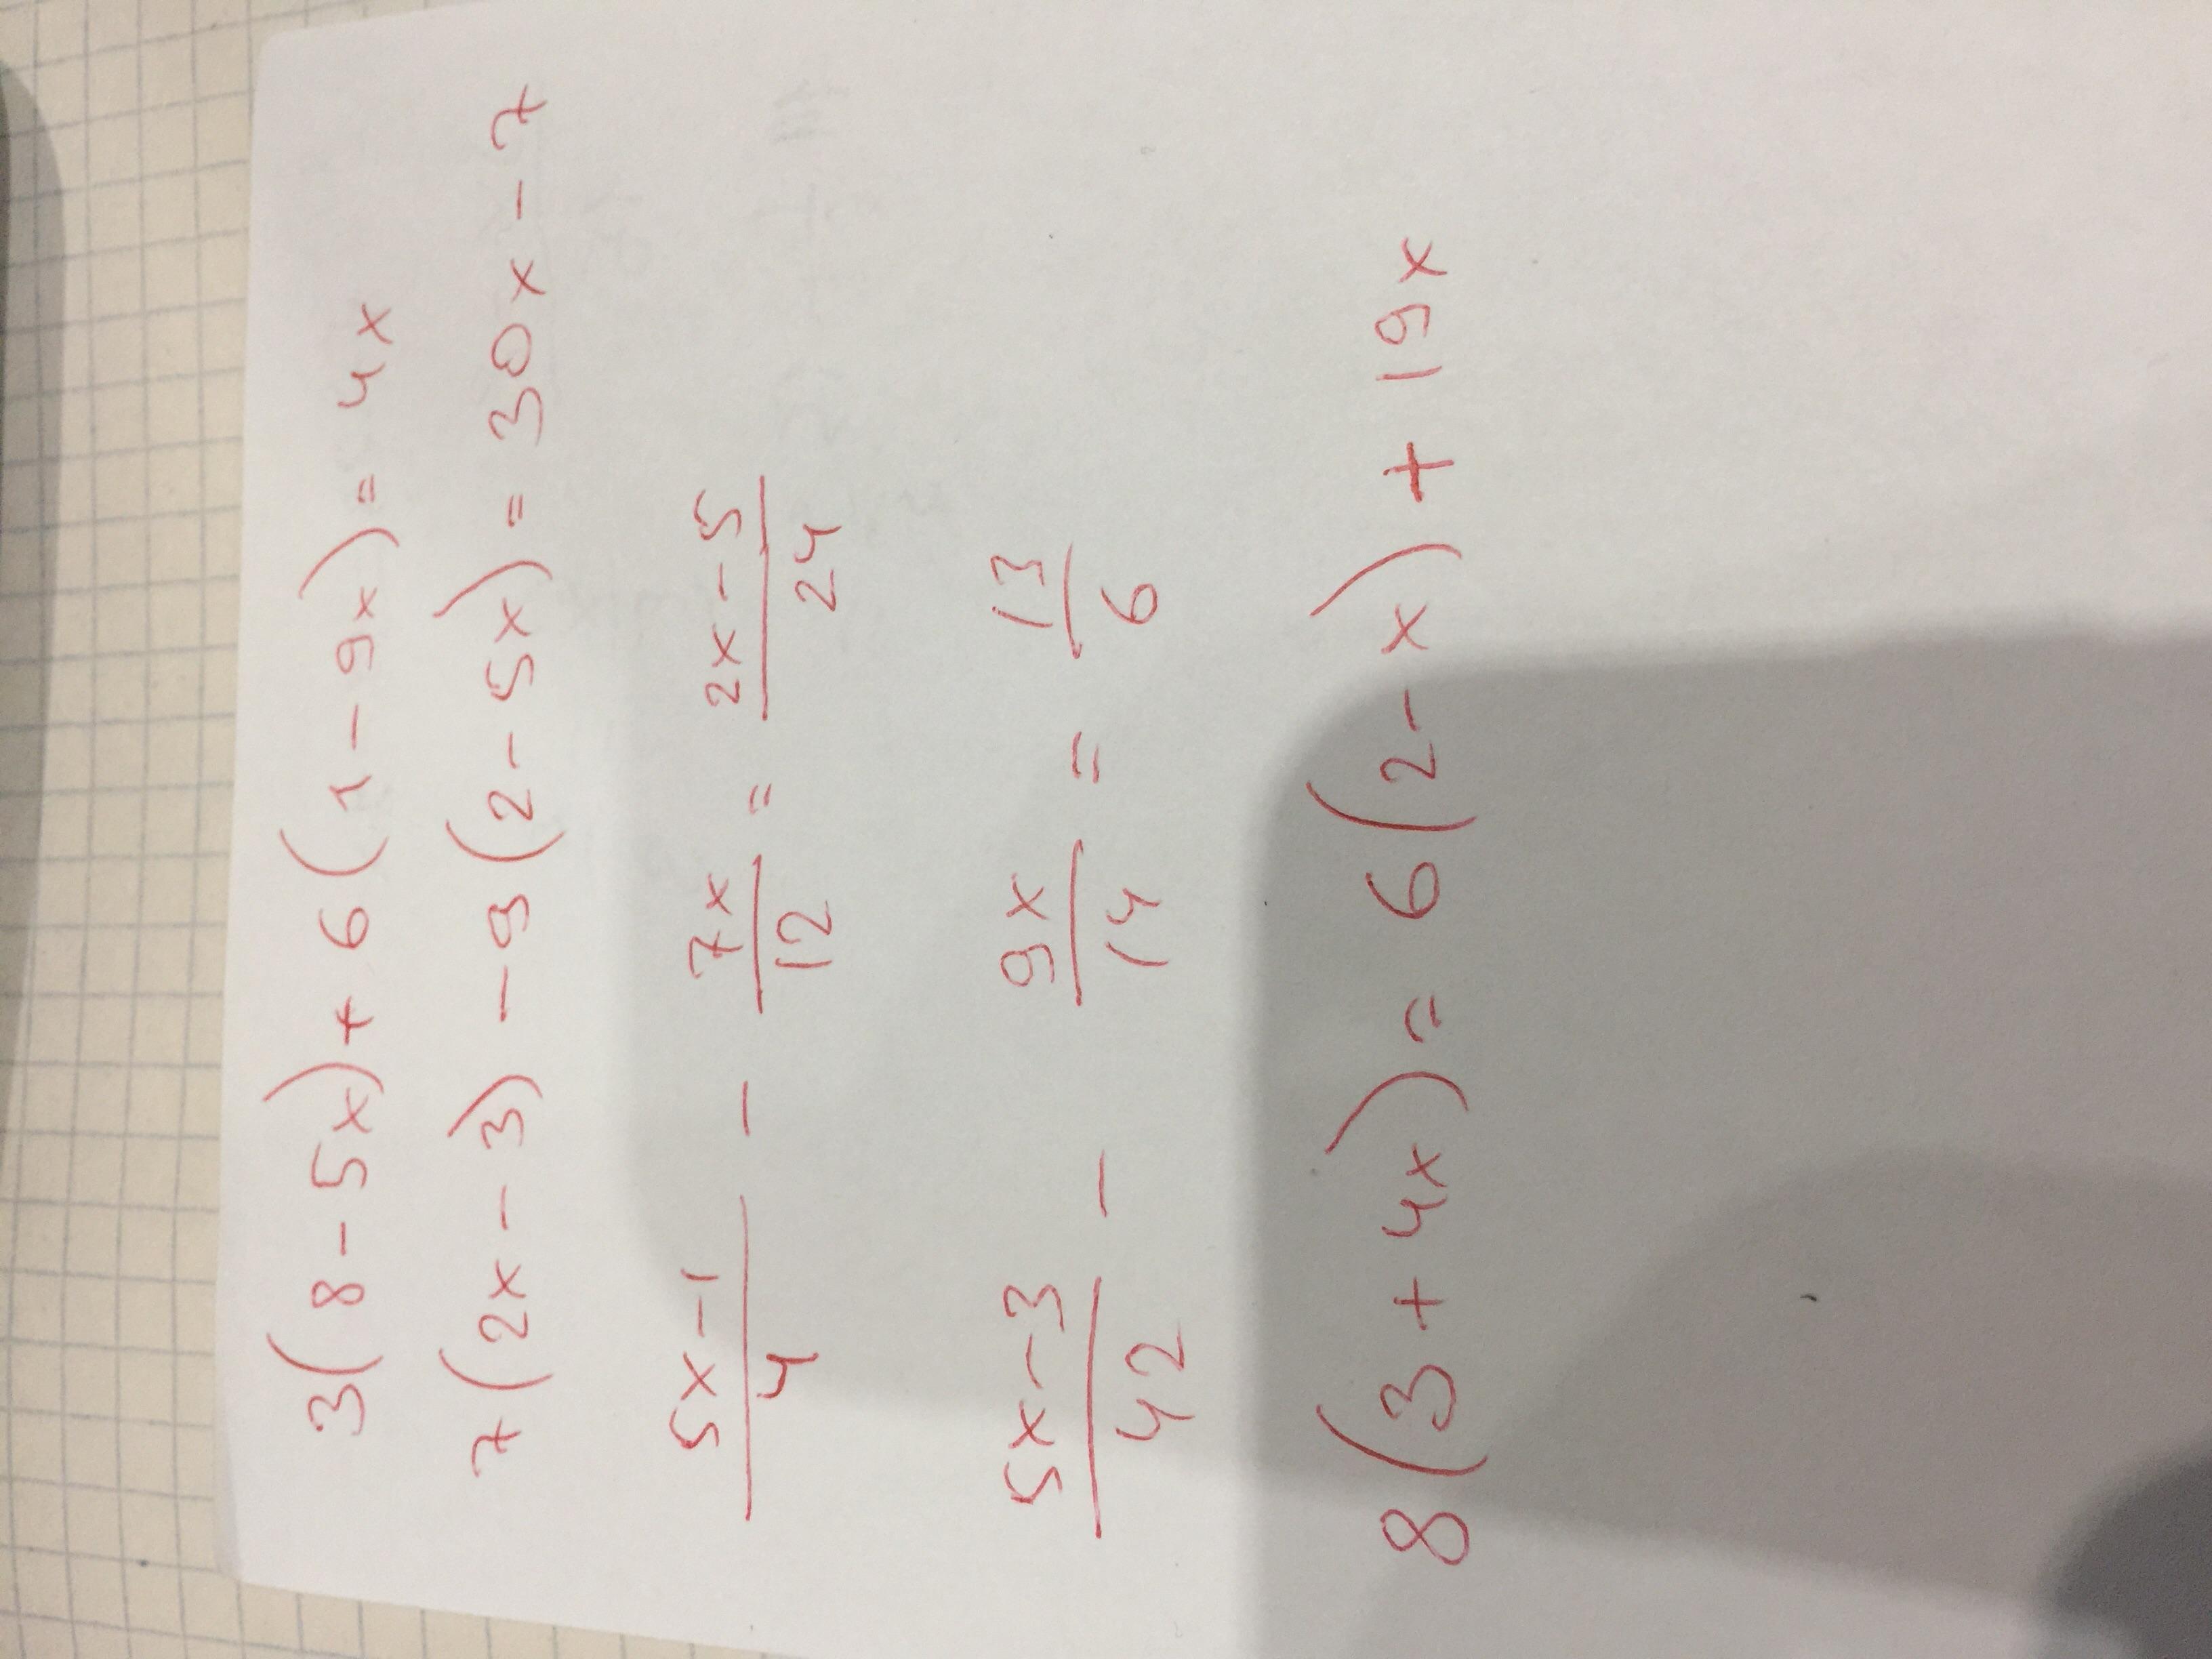 3(8-5x)+6(1-9x)=4x
7(2x-3)-9(2-5x)=30x-7
5x-1/4 - 7x/12 = 2x-5/24
5x-3/42 - 9x/14 = 13/6
8(3+4x)=6(2-x)+19x